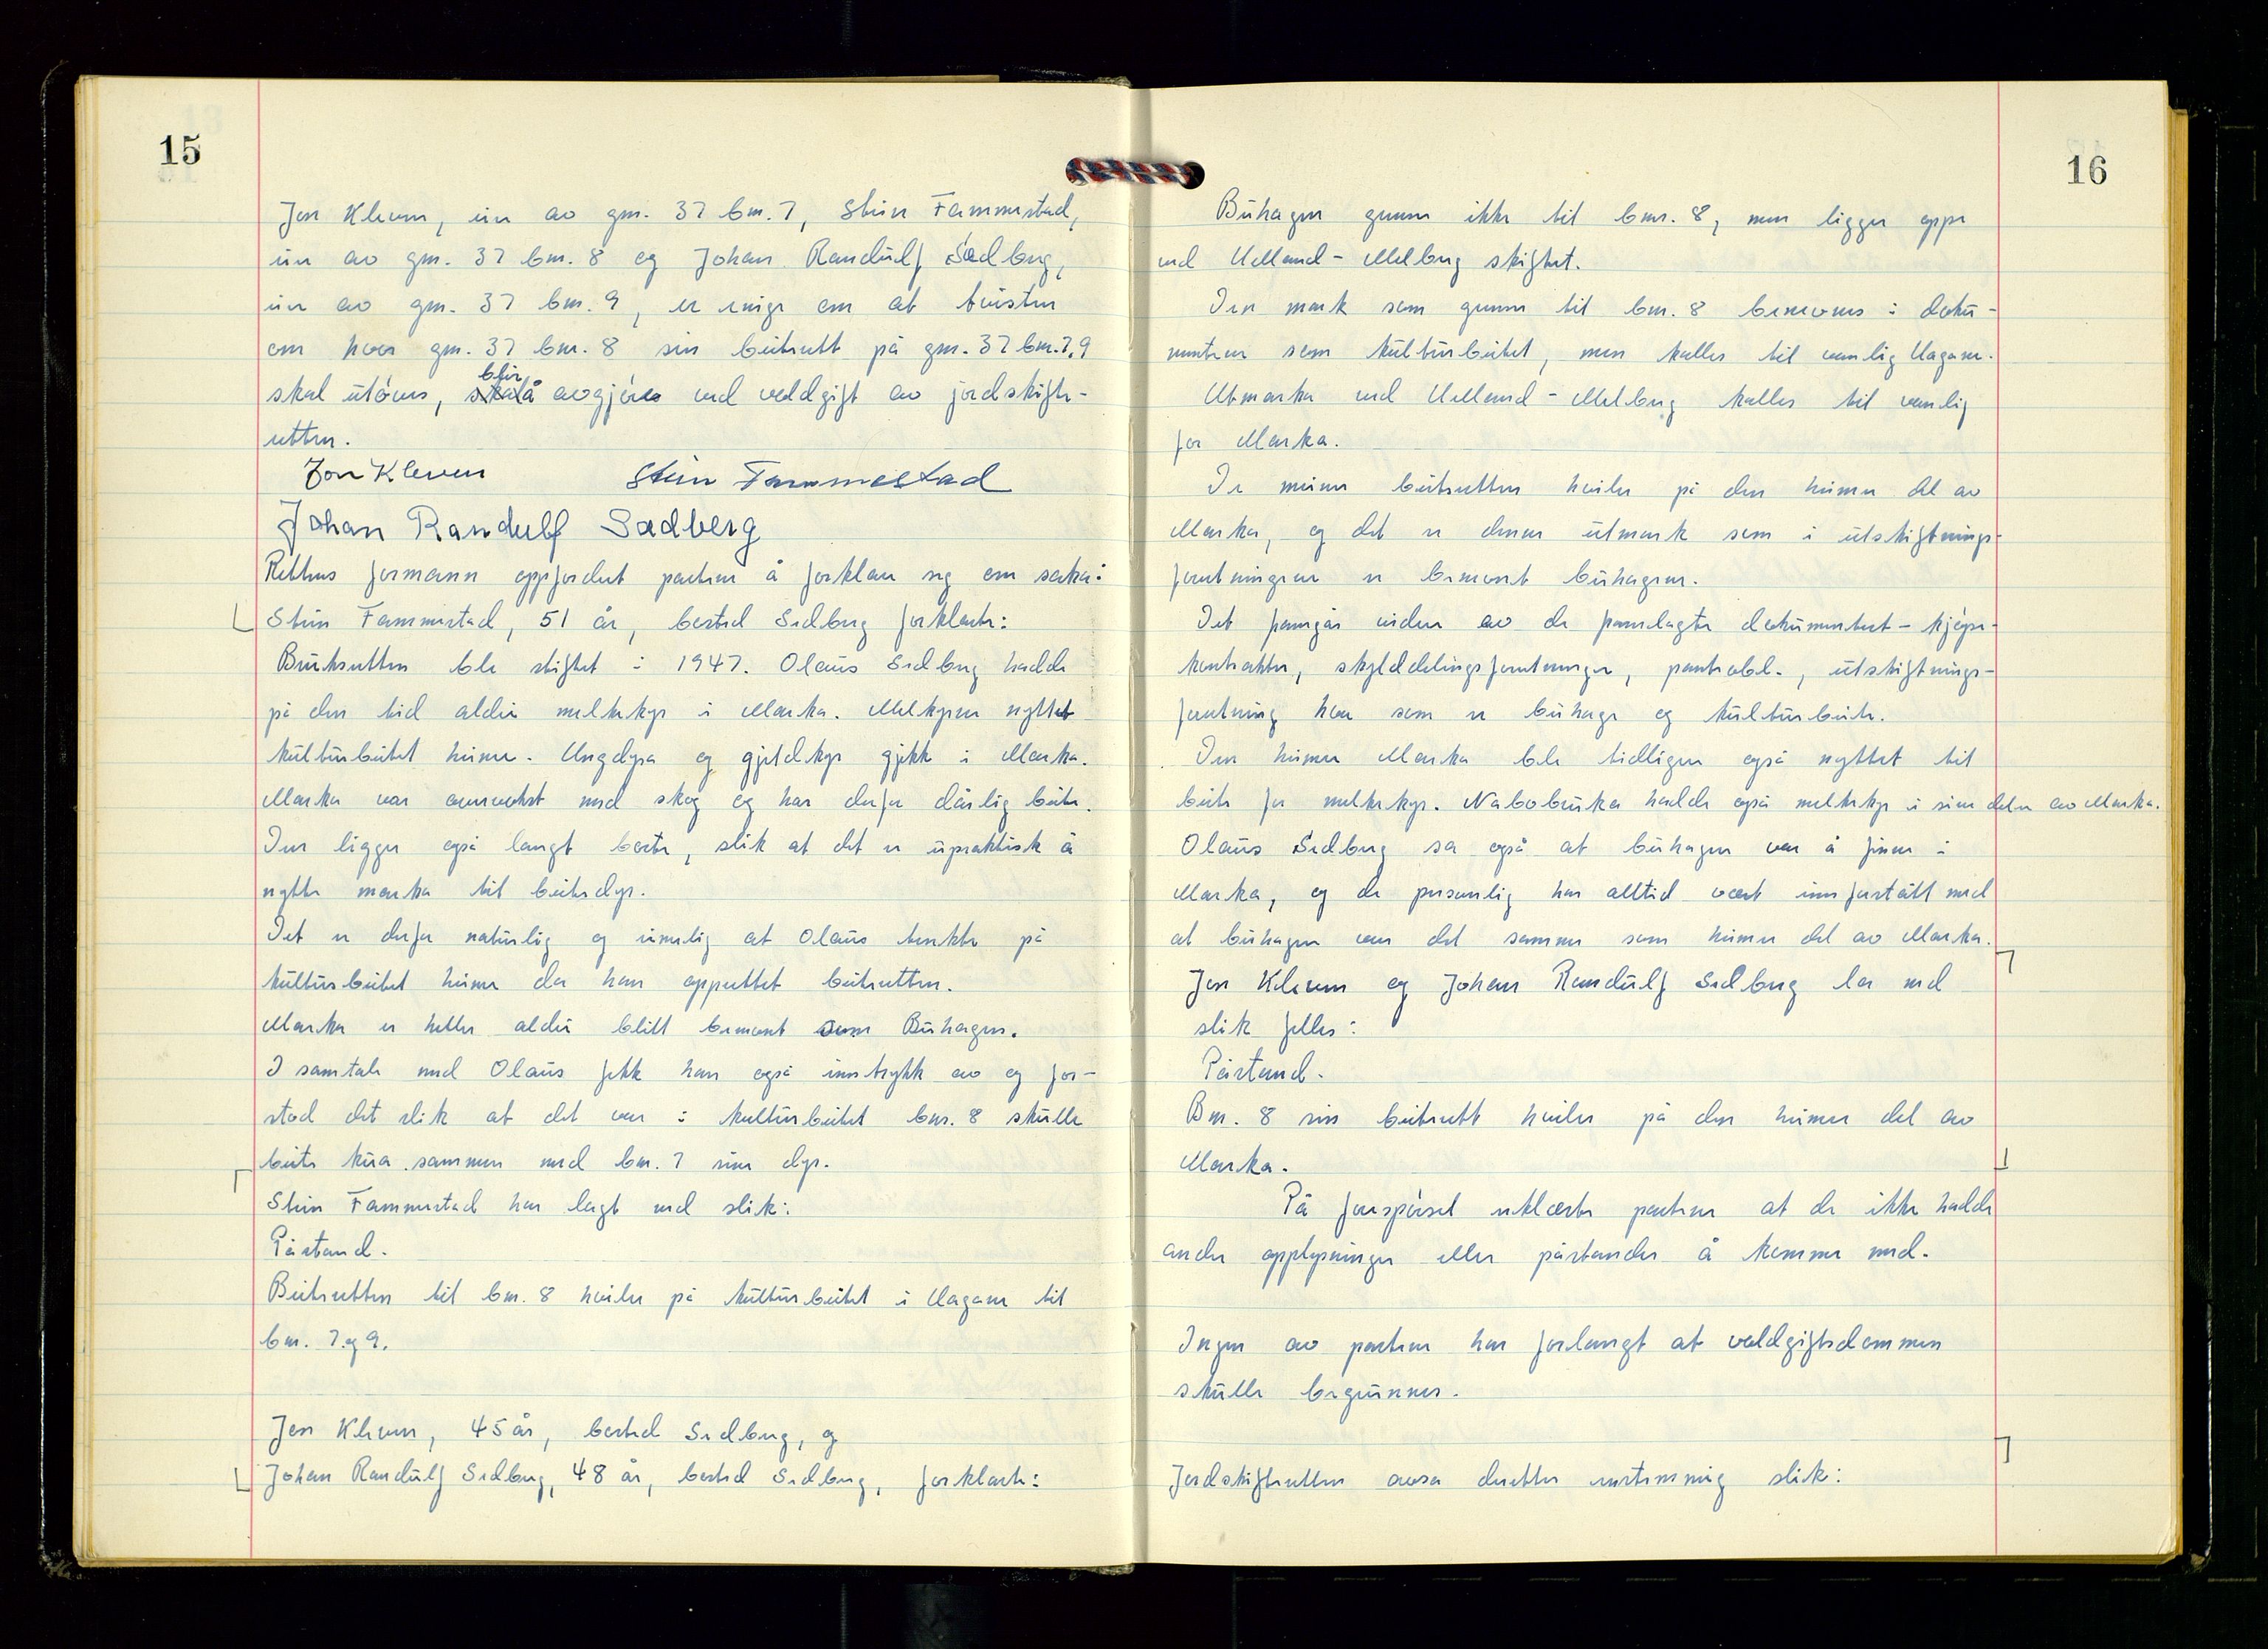 15
Jon Kleven, eier av gnr. 37 bnr. 7, Stein Fammestad,
eier av gnr. 37 bnr. 8 og Johan Randulf Sædberg,
eier av gnr. 37 bnr. 9, er enige om at tvisten
om hvor gnr. 37 bnr. 8 sin beiterett på gnr. 37 bnr. 7,9
skal utøves, blir å avgjøres ved voldgift av jordskifte-
retten.
Jon Kleven Stein Fammestad
Johan Randulf Sædberg
Rettens formann oppfordret partene å forklare seg om saka:
Stein Fammestad, 51 år, bosted Sedberg forklarte:
Bruksretten ble stiftet i 1947. Olaus Sedberg hadde
på den tid aldri melkekyr i Marka. Melkyrne nyttet
kulturbeitet heime. Ungdyra og gjeldkyr gjekk i Marka.
Marka var overvokst med skog og har derfor dårlig beite.
Den ligger også langt borte, slik at det er upraktisk å
nytte marka til beitedyr.
Det er derfor naturlig og rimelig at Olaus tenkte på
kulturbeitet heime da han opprettet beiteretten.
Marka er heller aldri blitt benevnt som Buhagen.
I samtale med Olaus fekk han også inntrykk av og for-
stod det slik at det var i kulturbeitet bnr. 8 skulle
beite kua sammen med bnr. 7 sine dyr.
Stein Fammestad har lagt ned slik:
Påstand.
Beiteretten til bnr. 8 hviler på kulturbeitet i Hagane til
bnr. 7 og 9.
Jon Kleven, 45 år, bosted Sedberg, og
Johan Randulf Sedberg, 48 år, bosted Sedberg, forklarte:
16
Buhagen grenser ikke til bnr. 8, men ligger oppe
ved Helland - Melberg skiftet.
Den mark som grenser til bnr. 8 benevnes i doku-
mentene som kulturbeitet, men kalles til vanlig Hagane.
Utmarka ved Helland - Melberg kalles til vanlig
for Marka.
De mener beiteretten hviler på den heimre del av
Marka, og det er denne utmark som i utskiftnings-
forretningene er benevnt buhagene.
Det framgår videre av de framlagte dokumenter - kjøpe-
kontrakter, skylddelingsforretninger, panteobl., utskiftnings-
forretning hva som er buhage og kulturbeite.
Den heimre Marka ble tidligere også nyttet til
beite for melkekyr. Nabobruka hadde også melkekyr i sine deler av Marka.
Olaus Sedberg sa også at buhagen var å finne i
Marka, og de personlig har alltid vært innforstått med
at buhagen var det samme som heimre del av Marka.
Jon Kleven og Johan Randulf Sedberg la ned
slik felles:
Påstand.
Bnr. 8 sin beiterett hviler på den heimre del av
Marka.
På forespørsel erklærte partene at de ikke hadde
andre opplysninger eller påstander å komme med.
Ingen av partene har forlangt at voldgiftsdommen
skulle begrunnes.
Jordskifteretten avsa deretter enstemmig slik: